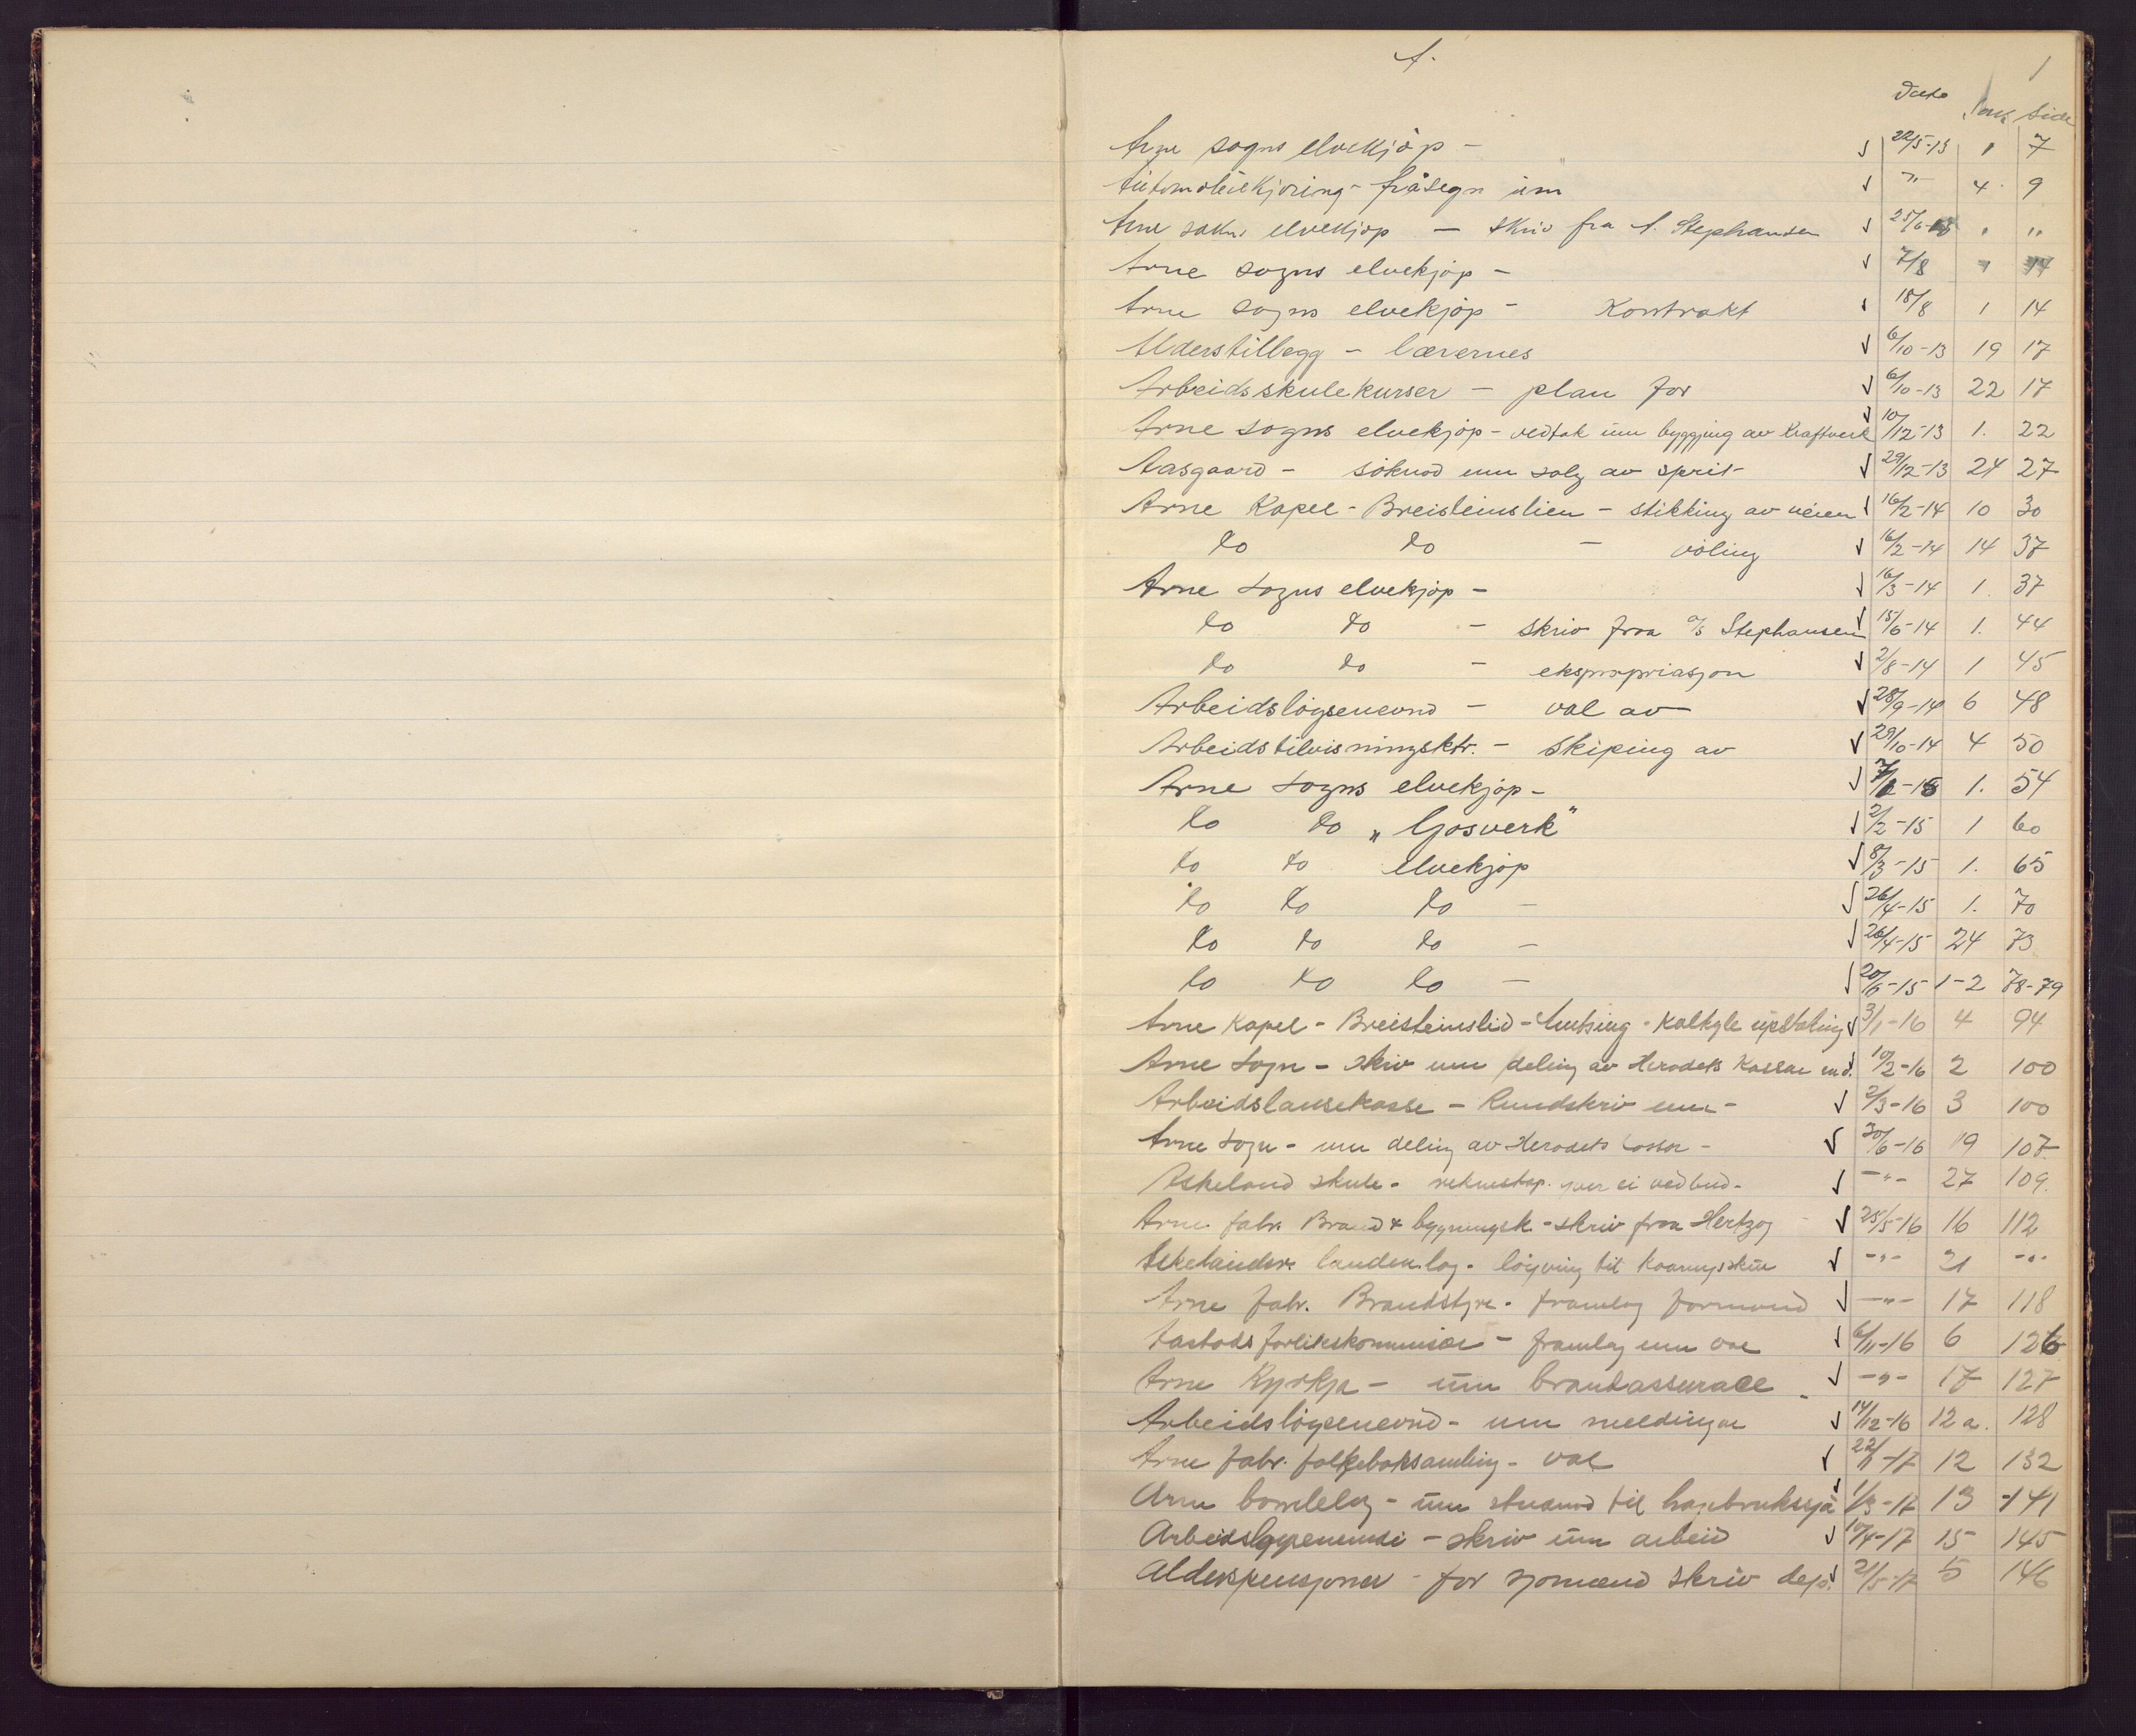 A.
1
Dato Sak Side
Arne sogns elvekjøp - √ 22/5-13 1 7
Automobilkjöring - fråsegn um √ " 4 9
Arne sokns elvekjøp - skriv fra A. Stephansen √ 25/6-13 " "
Arne sogns elvekjøp - √ 7/8 " 14
Arne sogns elvekjøp - Kontrakt √ 18/8 1 14
Alderstillegg - lærernes √ 6/10-13 19 17
Arbeidsskulekurser - plan for √ 6/10-13 22 17
Arne sogns elvekjøp - vedtak um bygging av Kraftverk √ 10/12-13 1. 22
Aasgaard - söknad um salg av sprit √ 29/12-13 24 27
Arne Kapel - Breisteinslien - stikking av veien √ 16/2-14 10 30
do do - völing √ 16/2-14 14 37
Arne sogns elvekjøp - √ 16/3-14 1. 37
do do - skriv fraa a/s Stephansen √ 15/6-14 1. 44
do do - ekspropriasjon √ 2/8-14 1 45
Arbeidsløysenevnd - val av √ 28/9-14 6 48
Arbeidstilvisningsktr. - skiping av √ 29/10-14 4 50
Arne sogns elvekjøp - √ 1. 54
do do „Gosverk" √ 2/2-15 1 60
do do elvekjøp √ 8/3-15 1. 65
do do do - √ 26/4-15 1. 70
do do do - √ 26/4-15 24 73
do do do - √ 20/6-15 1-2 78-79
Arne Kapel - Breisteinslid - - Kalkyle upstaking √ 3/1-16 4 94
Arne sogn - skriv um deling av Heradets Kassar m.d. √ 10/2-16 2 100
Arbeidslausekasse - Rundskriv um - √ 2/3-16 3 100
Arne sogn - um deling av Heradets kassar - √ 30/6-16 19 107
Askeland skule - rekneskap yver ei vedbud - √ -"- 27 109.
Arne fabr. Brand & bygningsk - skriv fraa Hertzog √ 25/5-16 16 112
landsk.lag - löyving til √ -"- 21 -"-
Arne fabr. Brandstyre - framlag formand √ -"- 17 118
Aastads forlikskommisar - framlag um val √ 6/11-16 6 126
Arne Kyrkja - um brandassurace √ -"- 17 127
Arbeidsløysenevnd - um meldingar √ 14/12-16 12 a. 128
Arne fabr. folkeboksamling - val √ 22/1-17 12 132
Arne bondelag - um stuanad til hagebrukssjå √ 1/3-17 13 141
Arbeidsløysenemdi - skriv um arbeid √ 10/4-17 15 145
Alderspensjoner - for sjomænd skriv dep. √ 21/5-17 5 146